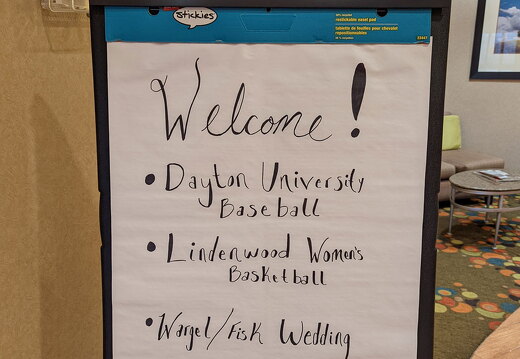 stickies
restickable easel pad
tablette de feuilles pour chevalet
repositionnables
Welcome!
• Dayton University
Baseball
• Lindenwood Women's
Basketball
• Wargel/Fisk Wedding